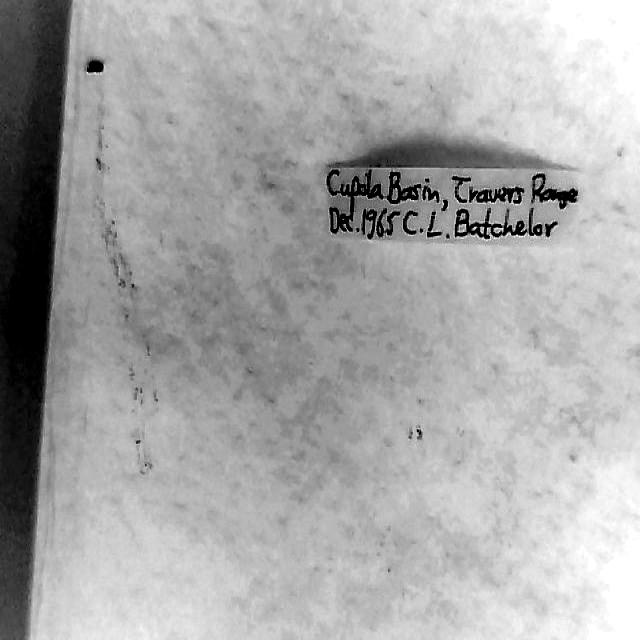 Cupola Basin, Travers Range
Dec. 1965 C. L. Batchelor